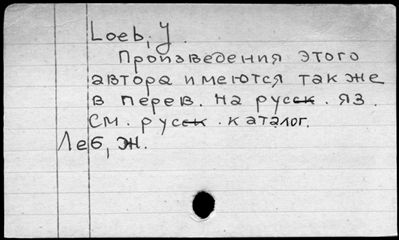 Loeb, J.
Произведения этого
автора имеются также
в перев. на русск. яз.
См. русск. каталог.
Леб, Ж.